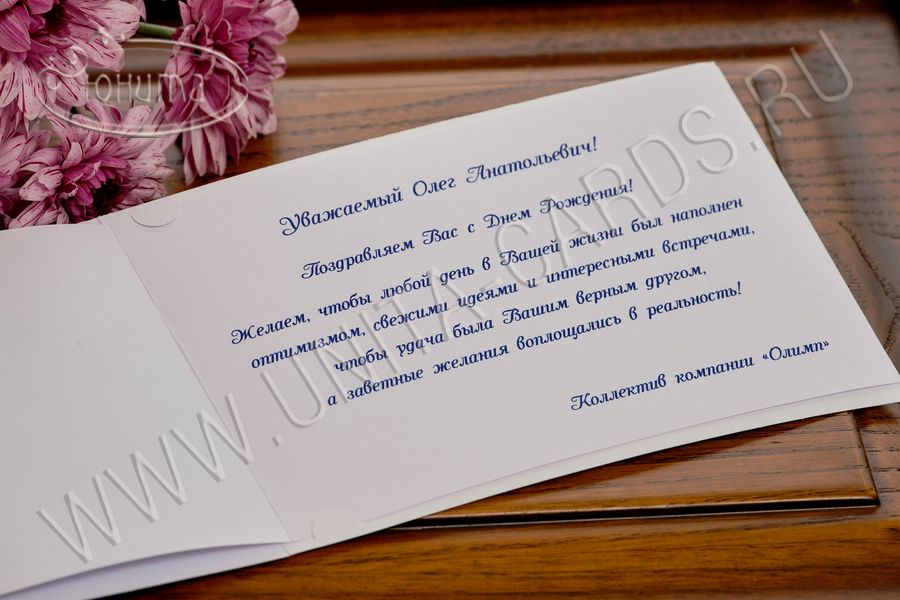 Юнита
Уважаемый Олег Анатольевич!
Поздравляем Вас с Днем Рождения!
Желаем, чтобы любой день в Вашей жизни был наполнен
оптимизмом, свежими идеями и интересными встречами,
чтобы удача была Вашим верным другом,
а заветные желания воплощались в реальность!
Коллектив компании «Олимп»
WWW.UNITA-CARDS.RU